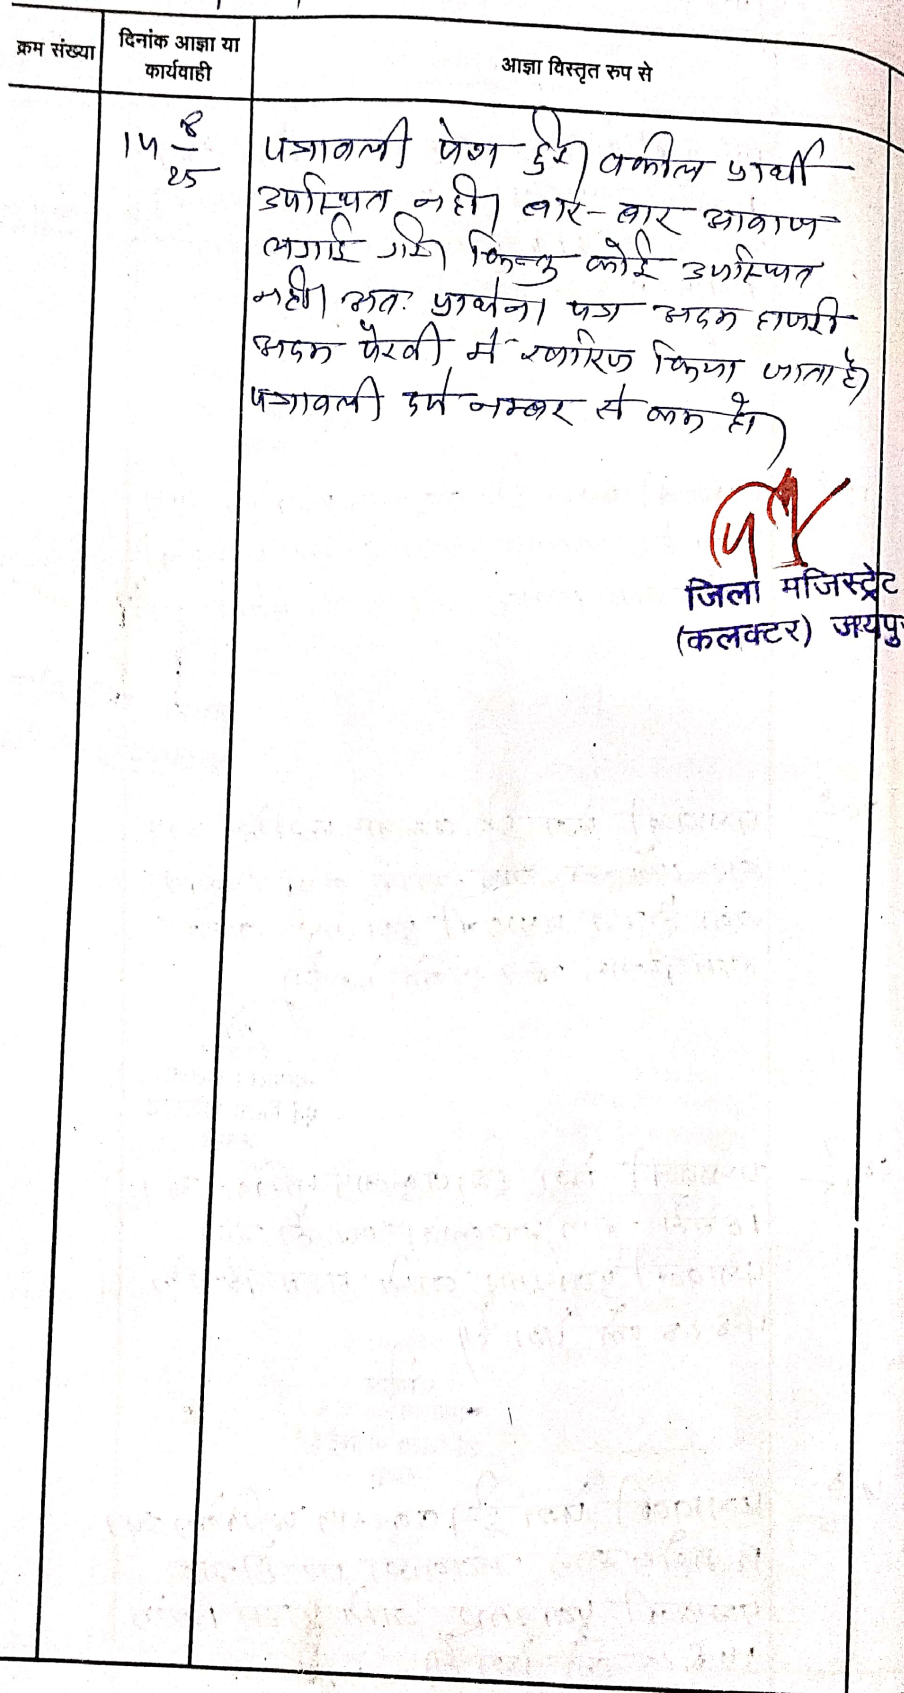 क्रम संख्या
दिनांक आज्ञा या
कार्यवाही
आज्ञा विस्तृत रुप से
14 8/25
पत्रावली पेश हुई। वकील प्रार्थी
उपस्थित नहीं। बार-बार आवाज
लगाई गई। किन्तु कोई उपस्थित
नहीं। अतः प्रार्थना पत्र अदम हाजरी
अदम पैरवी में खारिज किया जाता है।
पत्रावली दर्ज नम्बर से कम हो।
जिला मजिस्ट्रेट
(कलक्टर) जयपु